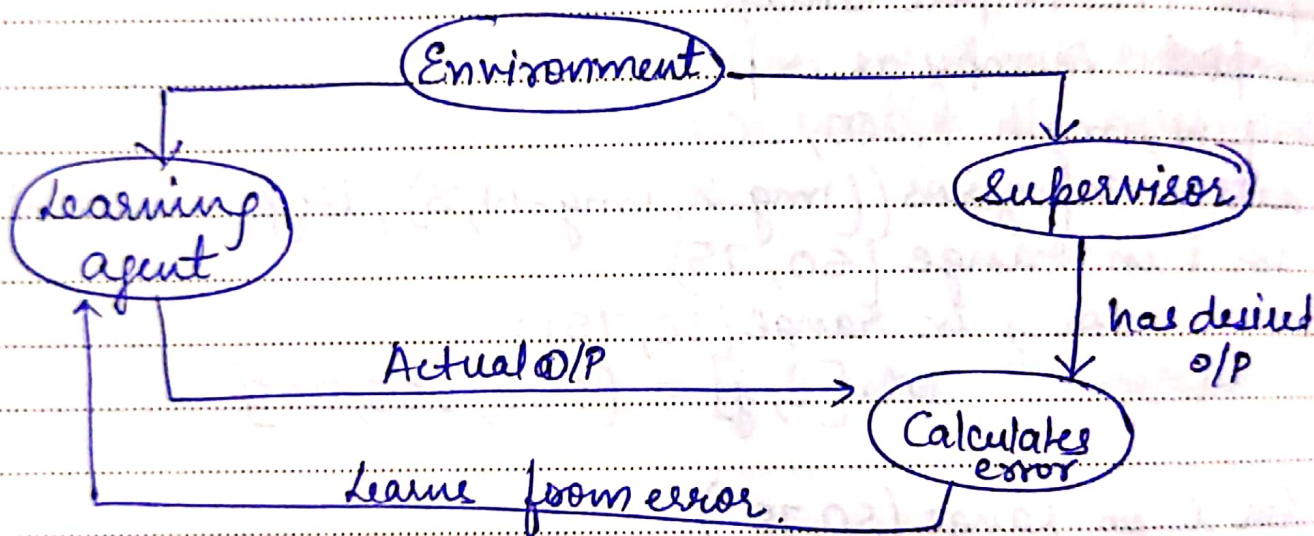 Environment
Learning
agent
Supervisor
has desired
O/P
Actual O/P
Calculates
error
Learns from error.